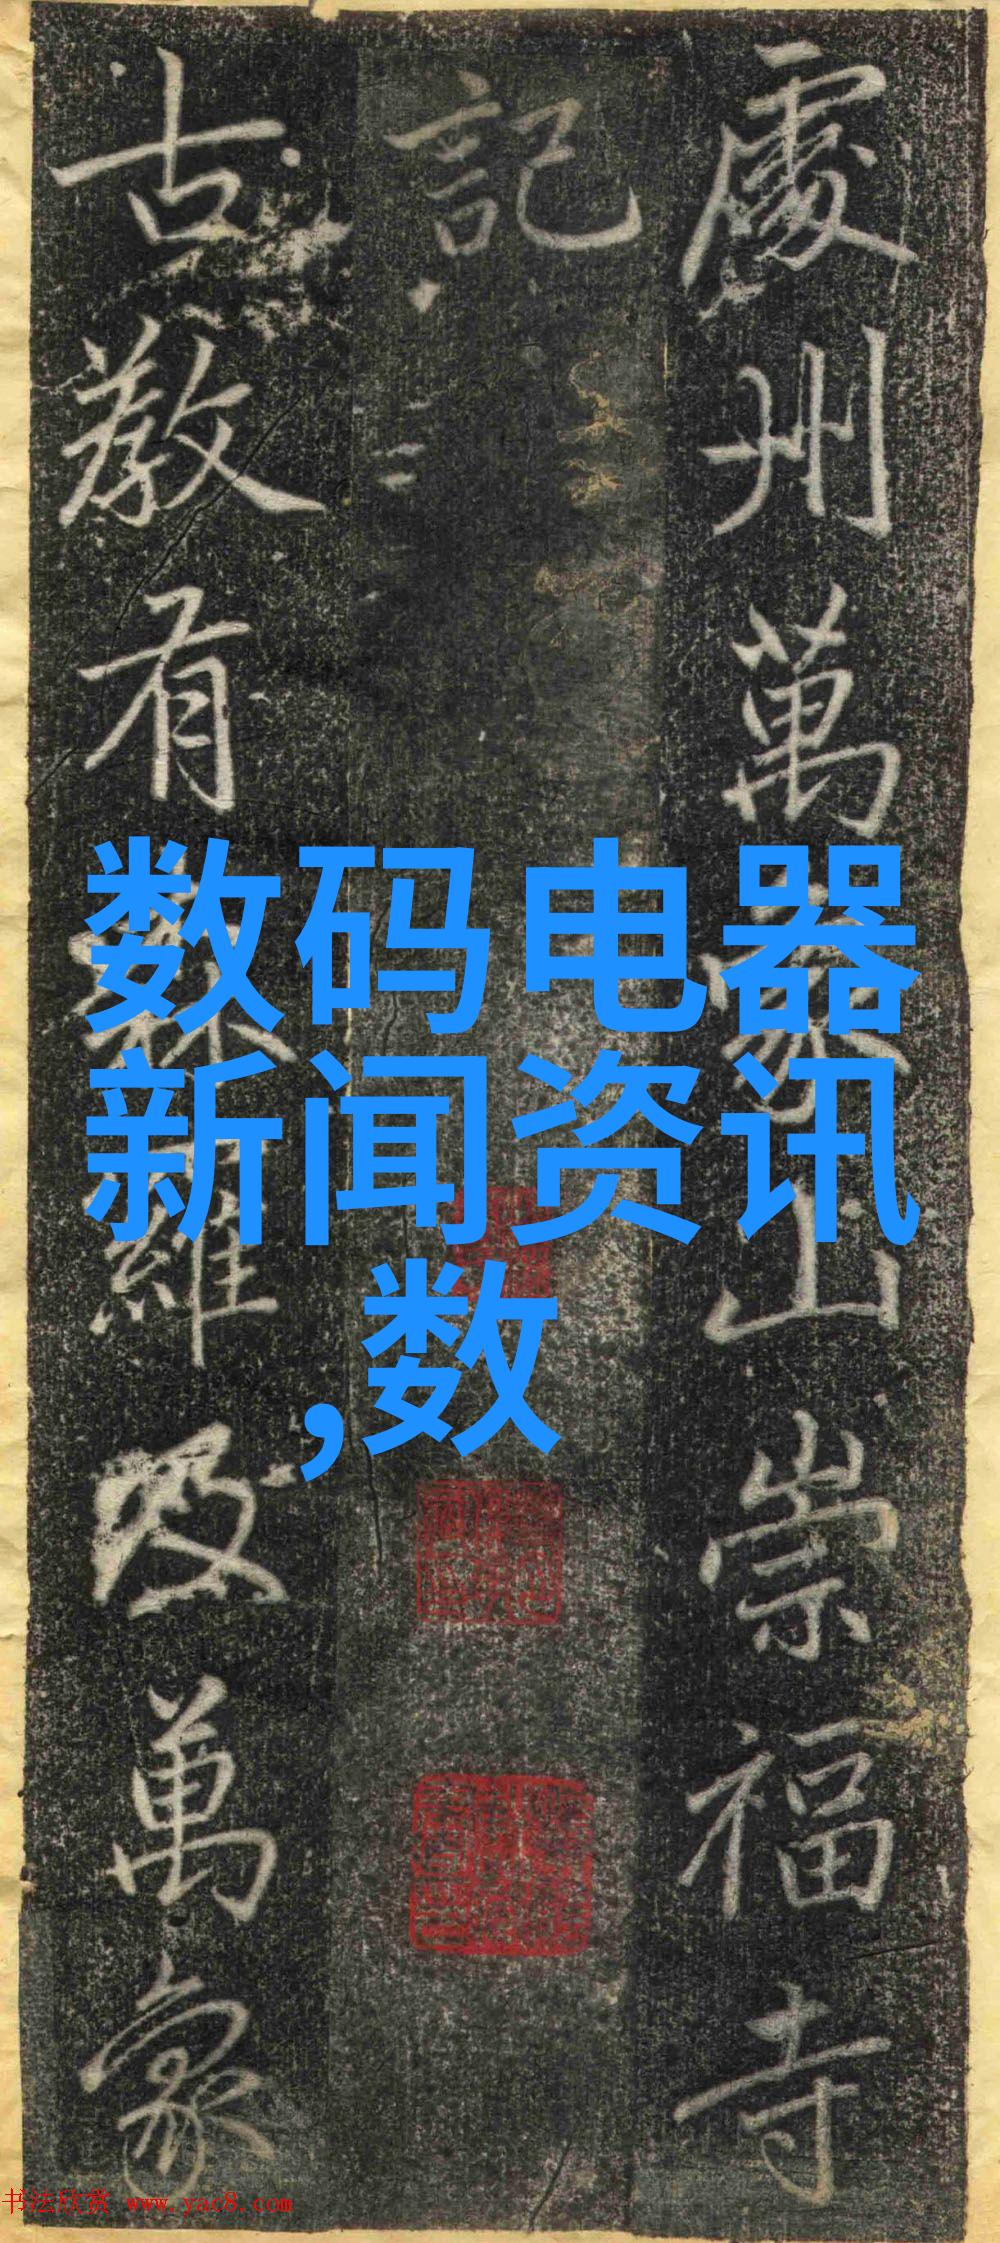 處州萬象山崇福寺
記
古教有森羅及萬象
数码电器
新闻资讯
,数
书法欣赏 www.yac8.com